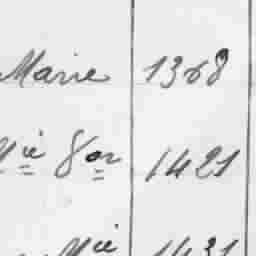 Marie 1368
Mie 8or 1421
Mie 1431